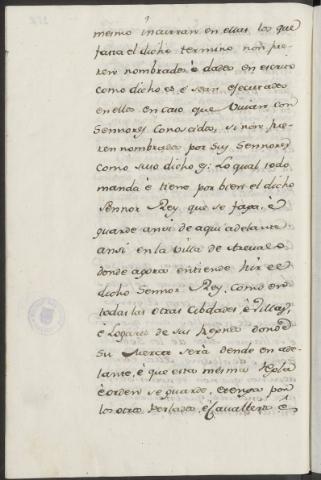 mesmo incurran en ellas los que
fasta el dicho termino non fue
ren nombrados é dados en escrito
como dicho es é sean executados
en ellos en caso que vivan con
Sennores conoscidos, si non fue
ren nombrados por sus Sennores
como suso dicho es: Lo qual todo
manda é tiene por bien el dicho
Sennor Rey que se faga, é
guarde ansi de aqui adelante
ansi en la villa de Arevalo
donde agora entiende hir el
dicho Sennor Rey, como en
todas las otras Cibdades é Villas,
é Logares de sus Regnos donde
Su Merced será dende en ade
lante, é que esta mesma Regla
é orden se guarde, é tenga por
los otros Perlados, é Cavalleros é